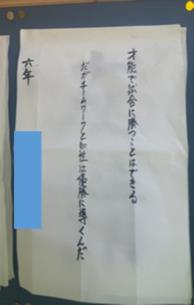 才能で試合に勝つことはできる
だがチームワークと知性は優勝に導くんだ
六年